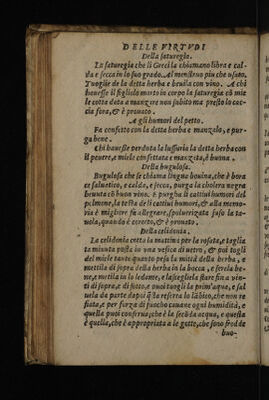 DELLE VIRTVDI
Della saturegia.
La saturegia che li Greci la chiamano libra e cal-
da e secca in lo suo grado. Al menstruo piu che usato.
Tuoglie de la detta herba e beuila con vino. A chi
hauesse il figliolo morto in corpo la saturegia cō mie
le cotta data a manzare non subito ma presto lo cac-
cia fora, & è prouato.
A gli humori del petto.
Fa confetto con la detta herba e manzalo, e pur-
ga bene.
Chi hauesse perduta la lussuria la detta herba con
il peuere, e miele confettata e manzeta, è buona.
Della bugulosa.
Bugulosa che si chiama lingua bouina, che è bora
ce saluatico, e calda, e secca, purga la cholera negra
beuuta cō buon vino. e purga li cattiui humori del
polmone, la testa de li cattiui humori, & alla memo-
ria è migliore se allegrare, spoluerizata suso la ta-
uola, quando èecerto, & è prouato.
Della celidonia.
La celidonia cotta la mattina per la rosata, e taglia
la minuta posta in una vesica di uetro, & poi togli
del miele tanto quanto pesa la mittà della herba, e
mettila di sopra della herba in la bocca, e serela be-
ne, e metila in lo ledame, e lasegliela stare fin a uin-
ti di sopra, e di sotto, e puoi tuogli la prim'aqua, e sal
uela da parte dapoi q̄lla reserra lo lābico, che non re
fiata, e per forza di fuocho cauane ogni humidità, e
quella puoi conserua, che è la secōda acqua, e questa
è quella, che è appropriata a le gotte, che sono frod de
buo-